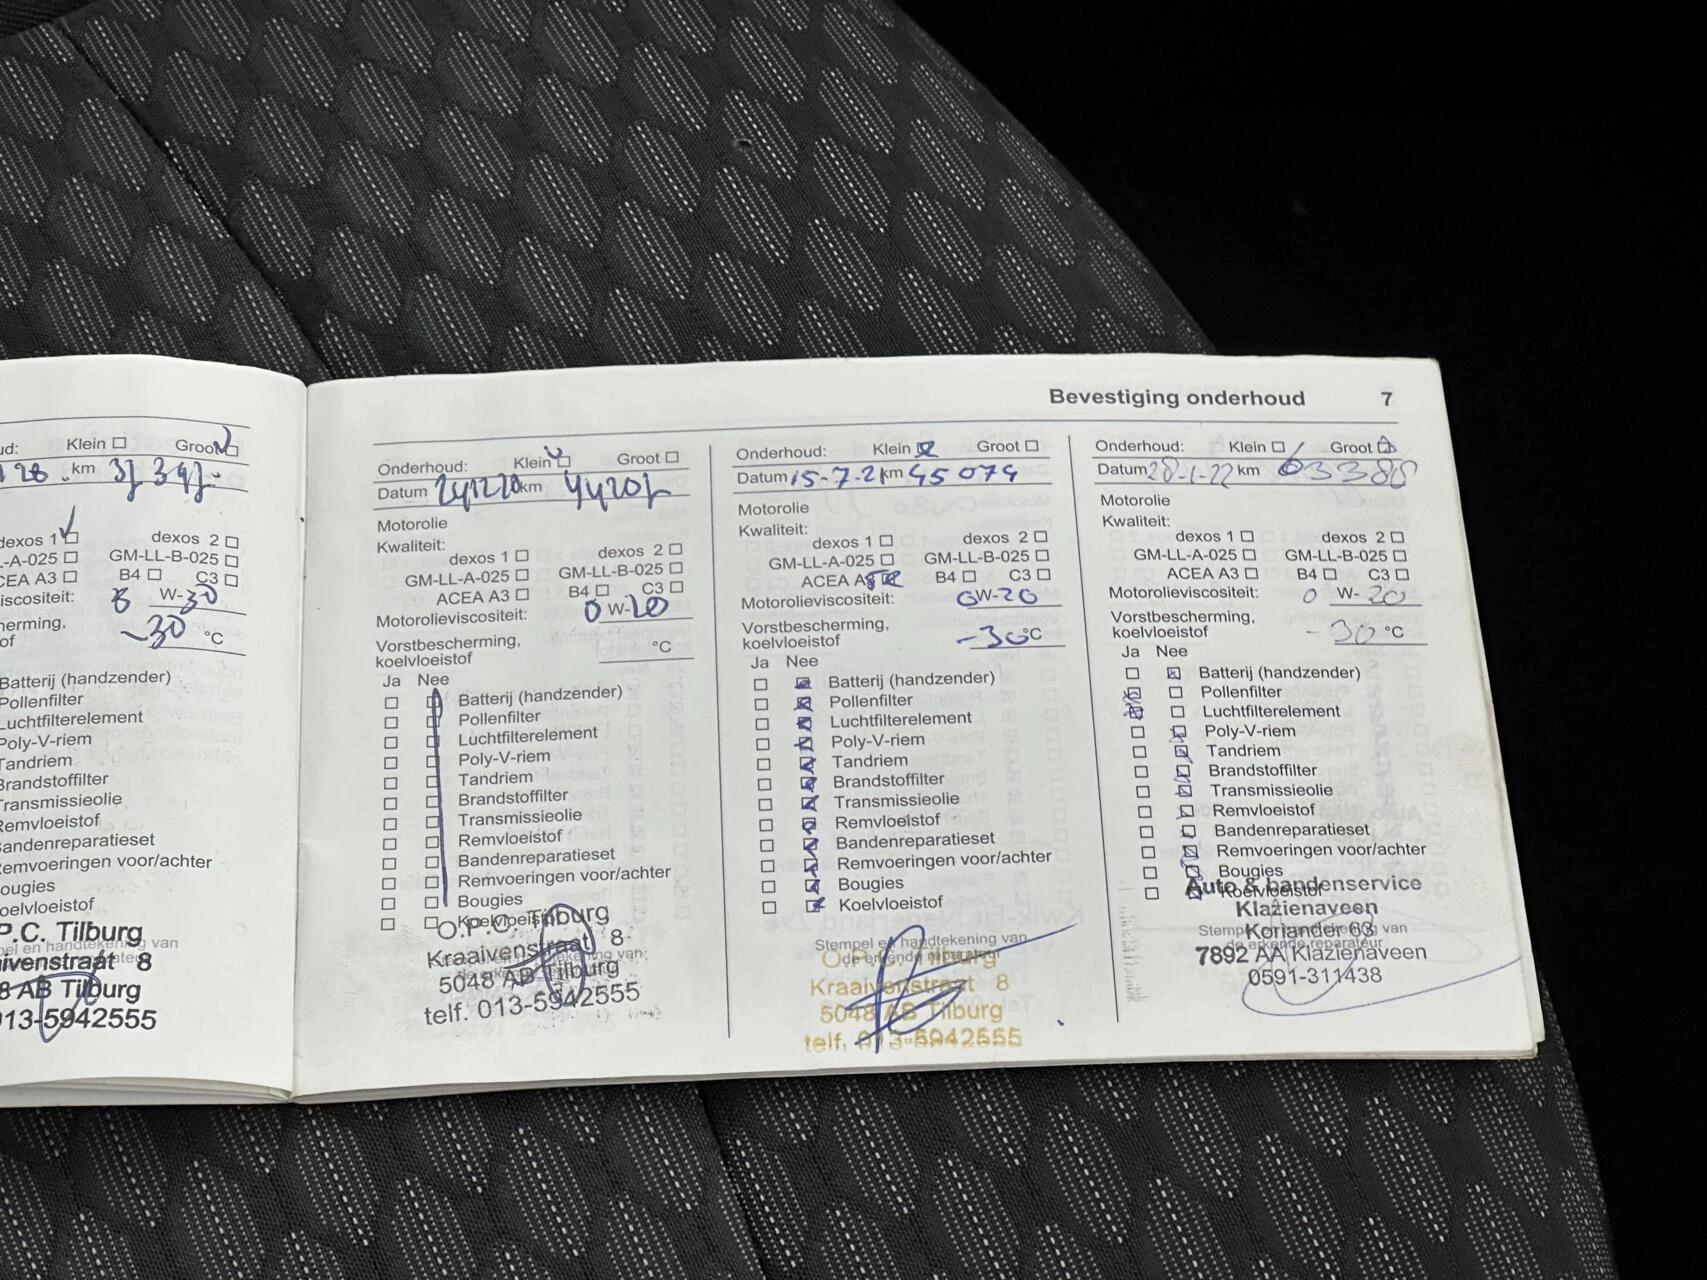 Bevestiging onderhoud 7
ud: Klein Groot
28 km
dexos 1 dexos 2
L-A-025 GM-LL-B-025
CEA A3 B4 C3
iscositeit: W-30
herming,
of -30 °C
Batterij (handzender)
Pollenfilter
Luchtfilterelement
Poly-V-riem
Tandriem
Brandstoffilter
Transmissieolie
Remvloeistof
Bandenreparatieset
Remvoeringen voor/achter
ougies
oelvloeistof
P.C. Tilburg
pel en handtekening van
aivenstraat 8
8 AB Tilburg
013-5942555
Onderhoud: Klein Groot
Datum km
Motorolie
Kwaliteit:
dexos 1 dexos 2
GM-LL-A-025 GM-LL-B-025
ACEA A3 B4 C3
Motorolieviscositeit: 0 W-20
Vorstbescherming,
koelvloeistof °C
Ja Nee
Batterij (handzender)
Pollenfilter
Luchtfilterelement
Poly-V-riem
Tandriem
Brandstoffilter
Transmissieolie
Remvloeistof
Bandenreparatieset
Remvoeringen voor/achter
Bougies
Koelvloeistof
O.P.C. Tilburg
Kraaivenstraat 8
5048 AB Tilburg
telf. 013-5942555
Onderhoud: Klein Groot
Datum 15-7-21 km 45074
Motorolie
Kwaliteit:
dexos 1 dexos 2
GM-LL-A-025 GM-LL-B-025
ACEA A5 B4 C3
Motorolieviscositeit: 0 W-20
Vorstbescherming,
koelvloeistof -30 °C
Ja Nee
Batterij (handzender)
Pollenfilter
Luchtfilterelement
Poly-V-riem
Tandriem
Brandstoffilter
Transmissieolie
Remvloeistof
Bandenreparatieset
Remvoeringen voor/achter
Bougies
Koelvloeistof
Stempel en handtekening van
de erkende reparateur
O.P.C. Tilburg
Kraaivenstraat 8
5048 AB Tilburg
telf. 013-5942555
Onderhoud: Klein Groot
Datum 28-1-22 km 63388
Motorolie
Kwaliteit:
dexos 1 dexos 2
GM-LL-A-025 GM-LL-B-025
ACEA A3 B4 C3
Motorolieviscositeit: 0 W-20
Vorstbescherming,
koelvloeistof -30 °C
Ja Nee
Batterij (handzender)
Pollenfilter
Luchtfilterelement
Poly-V-riem
Tandriem
Brandstoffilter
Transmissieolie
Remvloeistof
Bandenreparatieset
Remvoeringen voor/achter
Bougies
Koelvloeistof
Auto & bandenservice
Klazienaveen
Koriander 63
Stempel en handtekening van
de erkende reparateur
7892 AA Klazienaveen
0591-311438